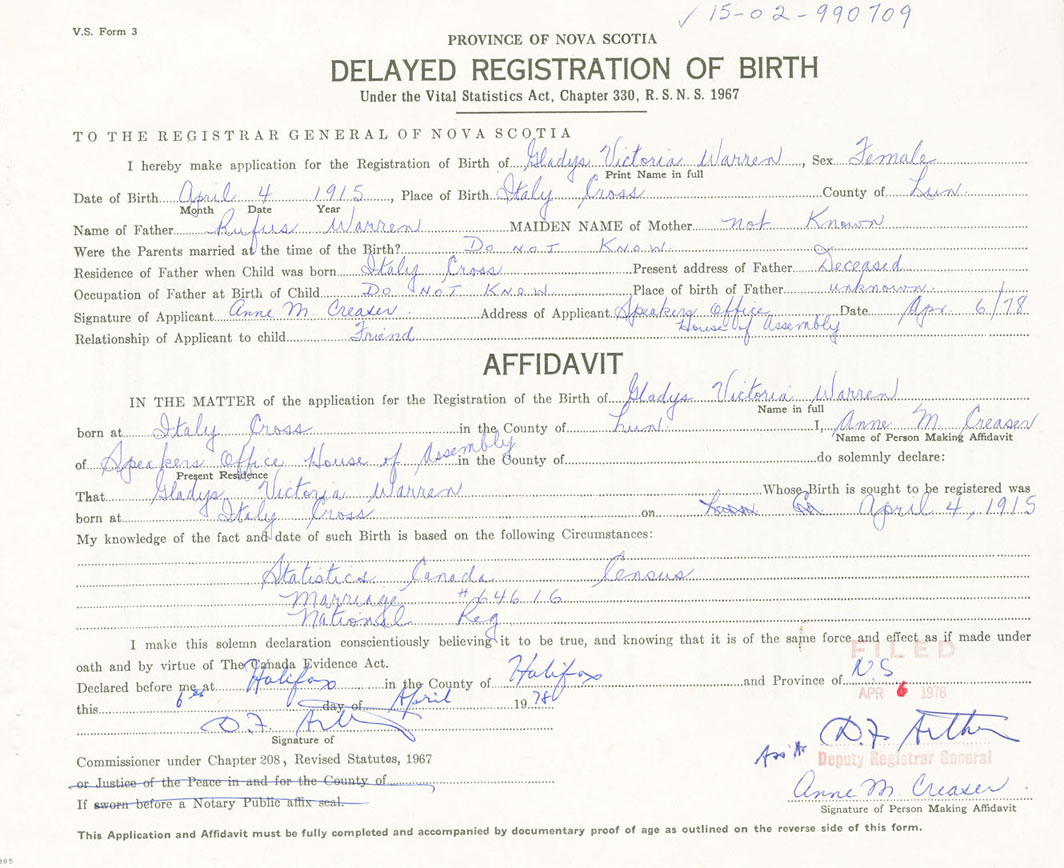 ✓ 15-02-990709
V.S. Form 3
PROVINCE OF NOVA SCOTIA
DELAYED REGISTRATION OF BIRTH
Under the Vital Statistics Act, Chapter 330, R. S. N. S. 1967
TO THE REGISTRAR GENERAL OF NOVA SCOTIA
I hereby make application for the Registration of Birth of Gladys Victoria Warren, Sex Female
Print Name in full
Date of Birth April 4 1915, Place of Birth Italy Cross County of Lun.
Month Date Year
Name of Father Rufus Warren MAIDEN NAME of Mother not Known
Were the Parents married at the time of the Birth? Do not Know
Residence of Father when Child was born Italy Cross Present address of Father Deceased
Occupation of Father at Birth of Child Do not Know Place of birth of Father unknown.
Signature of Applicant Anne M. Creaser. Address of Applicant Speakers Office Date Apr. 6/78
House of Assembly
Relationship of Applicant to child Friend
AFFIDAVIT
IN THE MATTER of the application for the Registration of the Birth of Gladys Victoria Warren
Name in full
born at Italy Cross in the County of Lun. I, Anne M. Creaser
Name of Person Making Affidavit
of Speakers Office House of Assembly in the County of do solemnly declare:
Present Residence
That Gladys Victoria Warren Whose Birth is sought to be registered was
born at Italy Cross on April 4, 1915
My knowledge of the fact and date of such Birth is based on the following Circumstances:
Statistics Canada Census
Marriage #64616
National Reg
I make this solemn declaration conscientiously believing it to be true, and knowing that it is of the same force and effect as if made under
oath and by virtue of The Canada Evidence Act.
FILED
Declared before me at Halifax in the County of Halifax and Province of N.S.
APR 6 1978
this 6th day of April 1978
D.F. Arthur
Signature of
Commissioner under Chapter 208, Revised Statutes, 1967
or Justice of the Peace in and for the County of
If sworn before a Notary Public affix seal.
Ass't D.F. Arthur
Deputy Registrar General
Anne M. Creaser.
Signature of Person Making Affidavit
This Application and Affidavit must be fully completed and accompanied by documentary proof of age as outlined on the reverse side of this form.